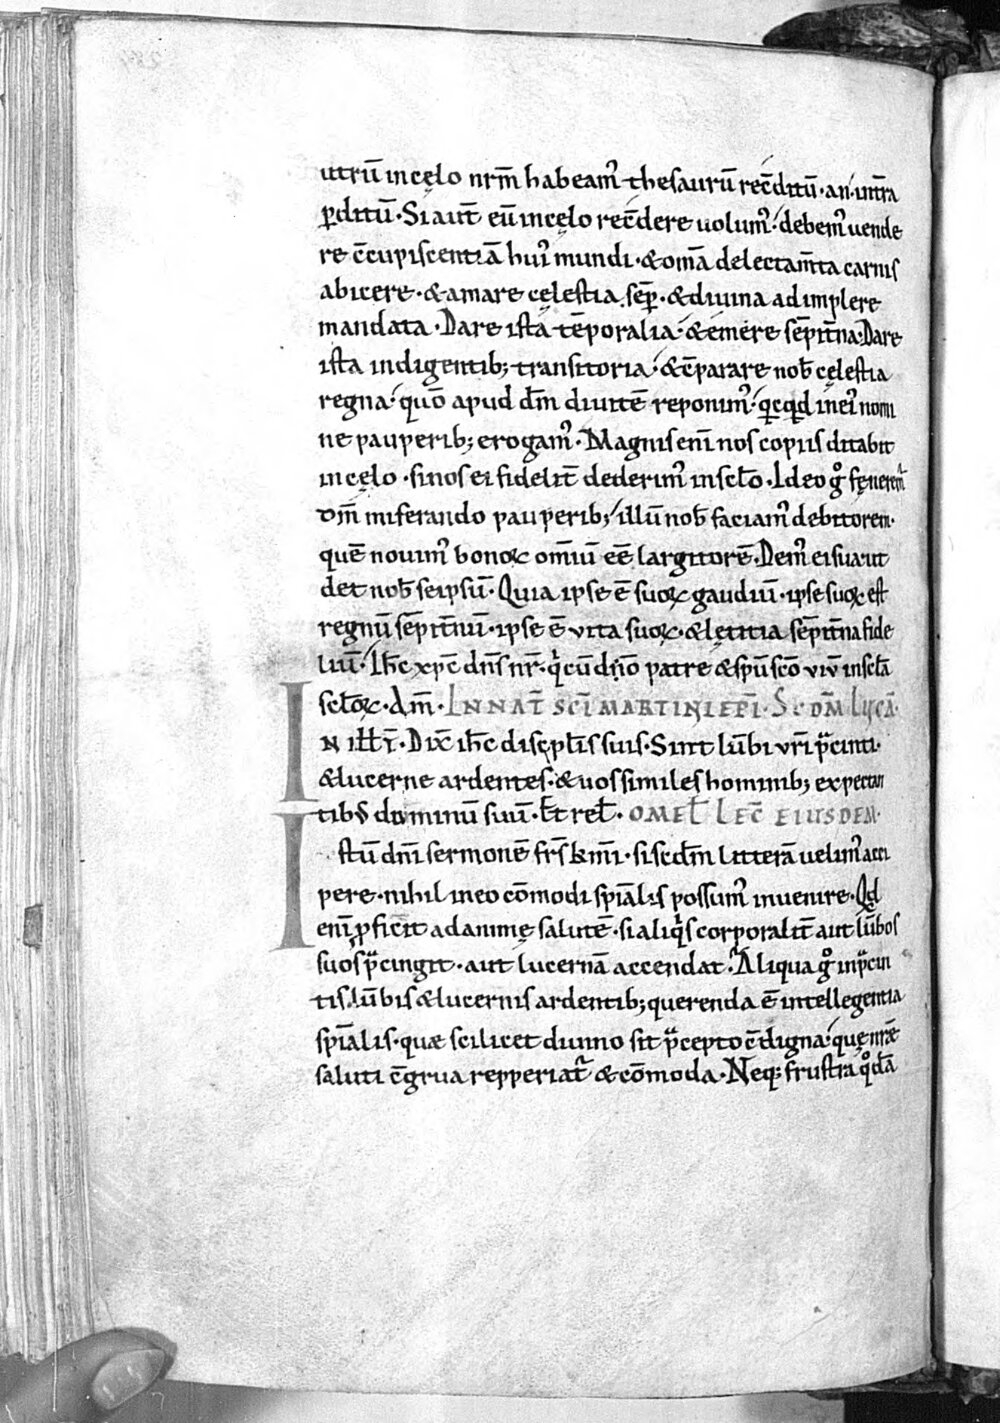 utrū in cęlo nrm̄ habeam᾽ thesaurū rec̄ditū · an int̄ra
ꝑditū · Si aut̄ eū in cęlo rec̄dere uolum᾽ · debem᾽ uende
re c̄cupiscentiā hui᾽ mundi · & om̄a delectam̄ta carnis
abicere · & amare cęlestia sēp · & diuina adimplere
mandata · Dare ista tēporalia · & emere sēpit̄na · Dare
ista indigentib; transitoria · & c̄parare nob̄ cęlestia
regna · quō apud dm̄ diuitē reponim᾽ · qͥcqͥd in ei᾽ nomi
ne pauperib; erogam᾽ · Magnis enī nos copiis ditabit
in cęlo · si nos ei fidelit̄ dederim᾽ in scl̄o · Ideo gͦ fęneremᷣ
dm̄ miserando pauperib; illū nob̄ faciam᾽ debitorem ·
quē nouim᾽ bonoꝝ om̄iū eē largitorē · Dem᾽ ei sua ut
det nob̄ seipsū · Quia ipse ē suoꝝ gaudiū · ipse suoꝝ est
regnū sēpit̄nū · ipse ē vita suoꝝ · & lętitia sēpit̄na fide
liū · Ihc̄ xpc̄ dn̄s nr̄ · qͥ cū dn̄o patre & spū sc̄o viv̄ in scl̄a
scl̄oꝝ · Am̄ · IN NAT̄ SCĪ MARTINI EPĪ · S̄cdm̄ Lucā ·
IN ill̄ t̄ · Dix̄ ihc̄ discipl̄is suis · Sint lūbi vr̄i p̄cincti ·
& lucerne ardentes · & uos similes hominib; expectan
tib᾽ dominū suū · Et rel̄ · OMEL̄ LEC̄ EIUSDEM ·
Istū dn̄i sermonē frs̄ km̄i · si scdm̄ litterā uelim᾽ acci
pere · nihil in eo cōmodi spiālis possum᾽ inuenire · Qd
enī ꝓficit ad animę salutē · si aliqͥs corporalit̄ aut lūbos
suos p̄cingit · aut lucernā accendat · Aliqua gͦ in p̄cin
tis lūbis & lucernis ardentib; querenda ē intellegentia
spiālis · quæ scilicet diuino sit p̄cepto c̄digna · quę nr̄ē
saluti c̄grua repperiatᷣ & cōmoda · Neq; frustra qͦdā